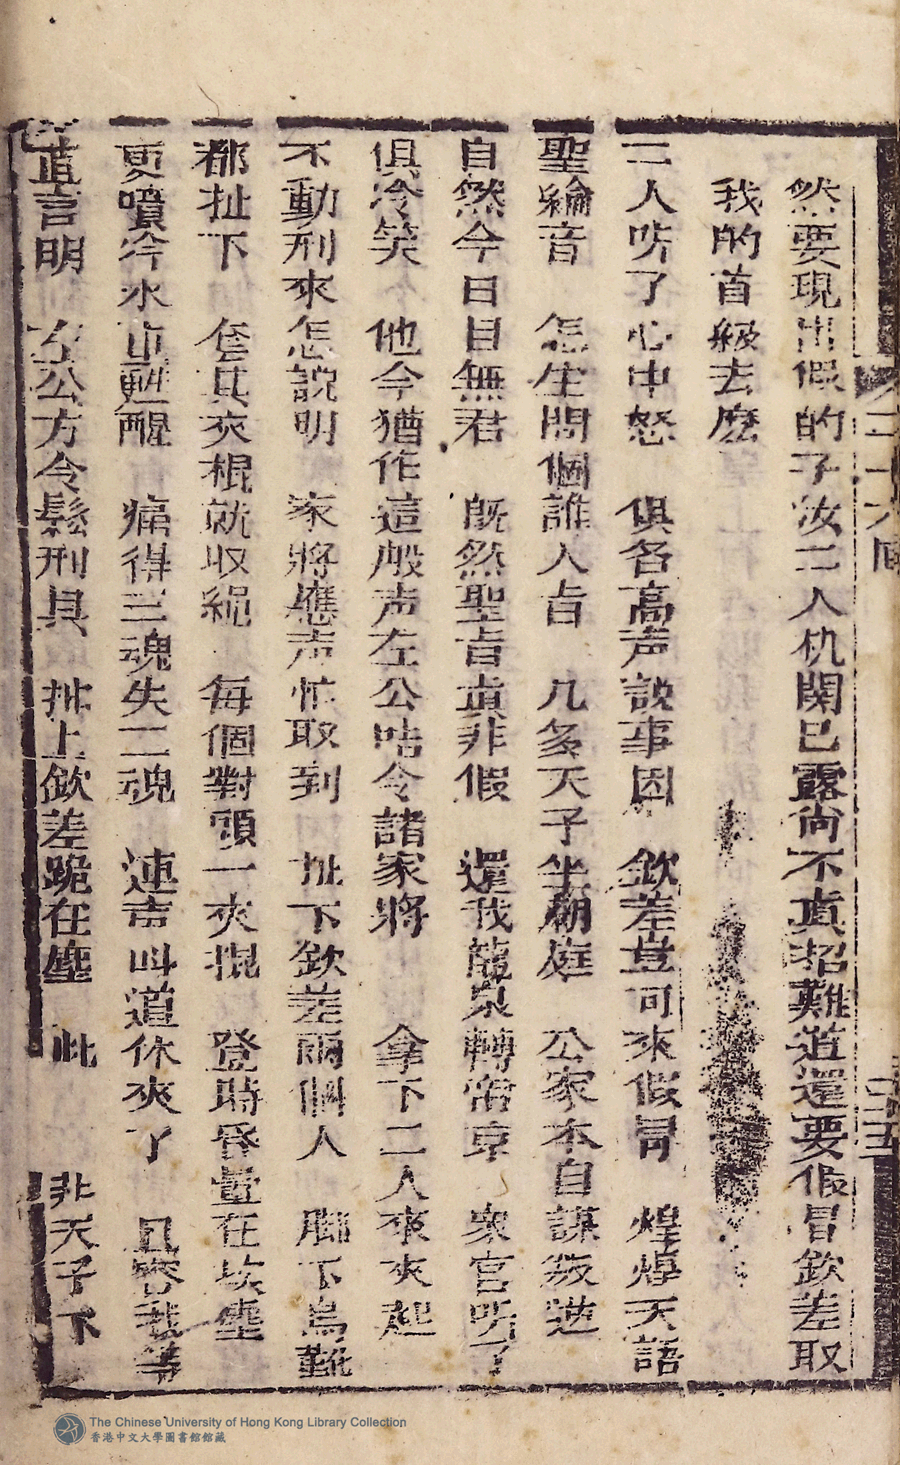 然要現出假的子汝二人机関已露尚不直招難道還要假冒欽差取
我的首級去麽
二人听了心中怒　俱各高声說事因　欽差豈可來假冐　煌煌天語
聖綸音　怎生問個誰人㫖　几多天子坐廟庭　公家本自謀叛逆
自然今日目無君　既然聖㫖直非假　還我龍泉轉帝京　衆官听了
俱冷笑　他今猶作這般声　左公咭令諸家將　拿下二人來夾起
不動刑來怎說明　家將應声忙取到　扯下欽差兩個人　脚下烏靴
都扯下　套其夾棍就収繩　每個對頭一夾棍　登時昏暈在埃塵
更噴冷水　甦醒　痛得三魂失二魂　連声叫道休夾了　且容我等
直言明　左公方令鬆刑具　扯上欽差跪在塵　此　非天子下
二十六回
三十五
The Chinese University of Hong Kong Library Collection
香港中文大學圖書館館藏